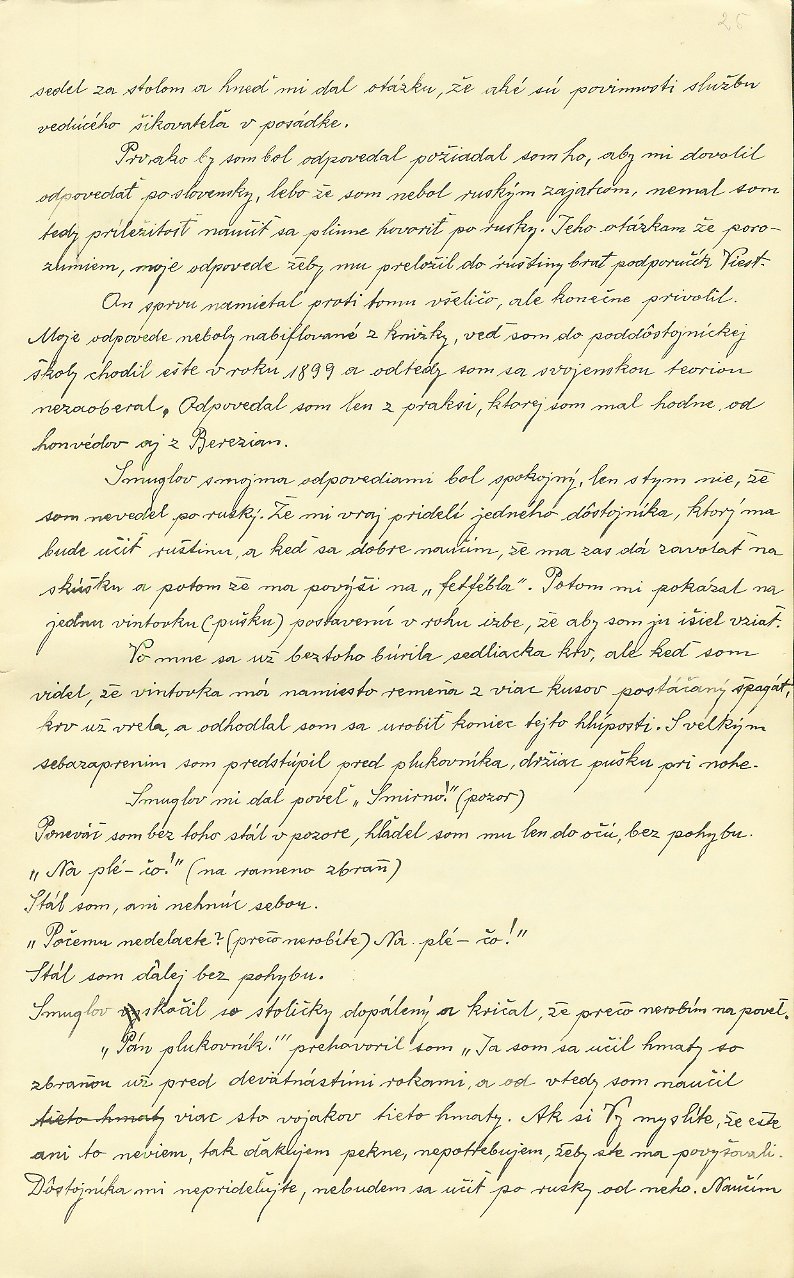 25
sedel za stolom a hneď mi dal otázku, že aké sú povinnosti službu
vedúcého šikovateľa v posádke.
Prv, ako by som bol odpovedal požiadal som ho, aby mi dovolil
odpovedať po slovensky, lebo že som nebol ruským zajatcom, nemal som
tedy príležitosť naučiť sa plinne hovoriť po rusky. Jeho otázkam že poro-
zumiem, moje odpovede žeby mu preložil do ruštiny brat podporučík Viest.
On sprvu namietal proti tomu všeličo, ale konečne privolil.
Moje odpovede neboly nabiflované z knižky, veď som do poddôstojníckej
školy chodil ešte v roku 1899 a odtedy som sa svojenskou teoriou
nezaoberal. Odpovedal som len z praksi, ktorej som mal hodne, od
honvédov aj z Berezian.
Smuglov s mojma odpovediami bol spokojný, len s tym nie, že
som nevedel po ruský. Že mi vraj pridelí jedného dôstojníka, ktorý ma
bude učiť ruštinu, a keď sa dobre naučím, že ma zas dá zavolať na
skúšku a potom že ma povýši na „fetfébla". Potom mi pokázal na
jednu vintovku (pušku) postavenú v rohu izbe, že aby som ju išiel vziať.
Vo mne sa už beztoho búrila sedliacka krv, ale keď som
videl, že vintovka má namiesto remeňa z viac kusov postáčaný špagát,
krv už vrela, a odhodlal som sa urobiť koniec tejto hlúposti. S velkým
sebazaprením som predstúpil pred plukovníka, držiac pušku pri nohe.
Smuglov mi dal poveľ „Smirno!" (pozor)
Ponevač som bez toho stál v pozore, hľadel som mu len do očú, bez pohybu.
„Na plé - čo!" (na rameno zbraň)
Stál som, ani nehnúc sebou.
„Počemu nedelaete? (prečo nerobíte) Na plé - čo!"
Stál som ďalej bez pohybu.
Smuglov vyskočil so stoličky dopálený a kričal, že prečo nerobím na poveľ.
„Pán plukovník!" prehavoril som „Ja som sa učil hmaty so
zbraňou už pred devätnástimi rokami, a od vtedy som naučil
tieto hmaty viac sto vojakov tieto hmaty. Ak si Vy myslíte, že ešte
ani to neviem, tak ďakujem pekne, nepotrebujem, žeby ste ma povyšovali.
Dôstojníka mi neprideľujte, nebudem sa učiť po rusky od neho. Naučím